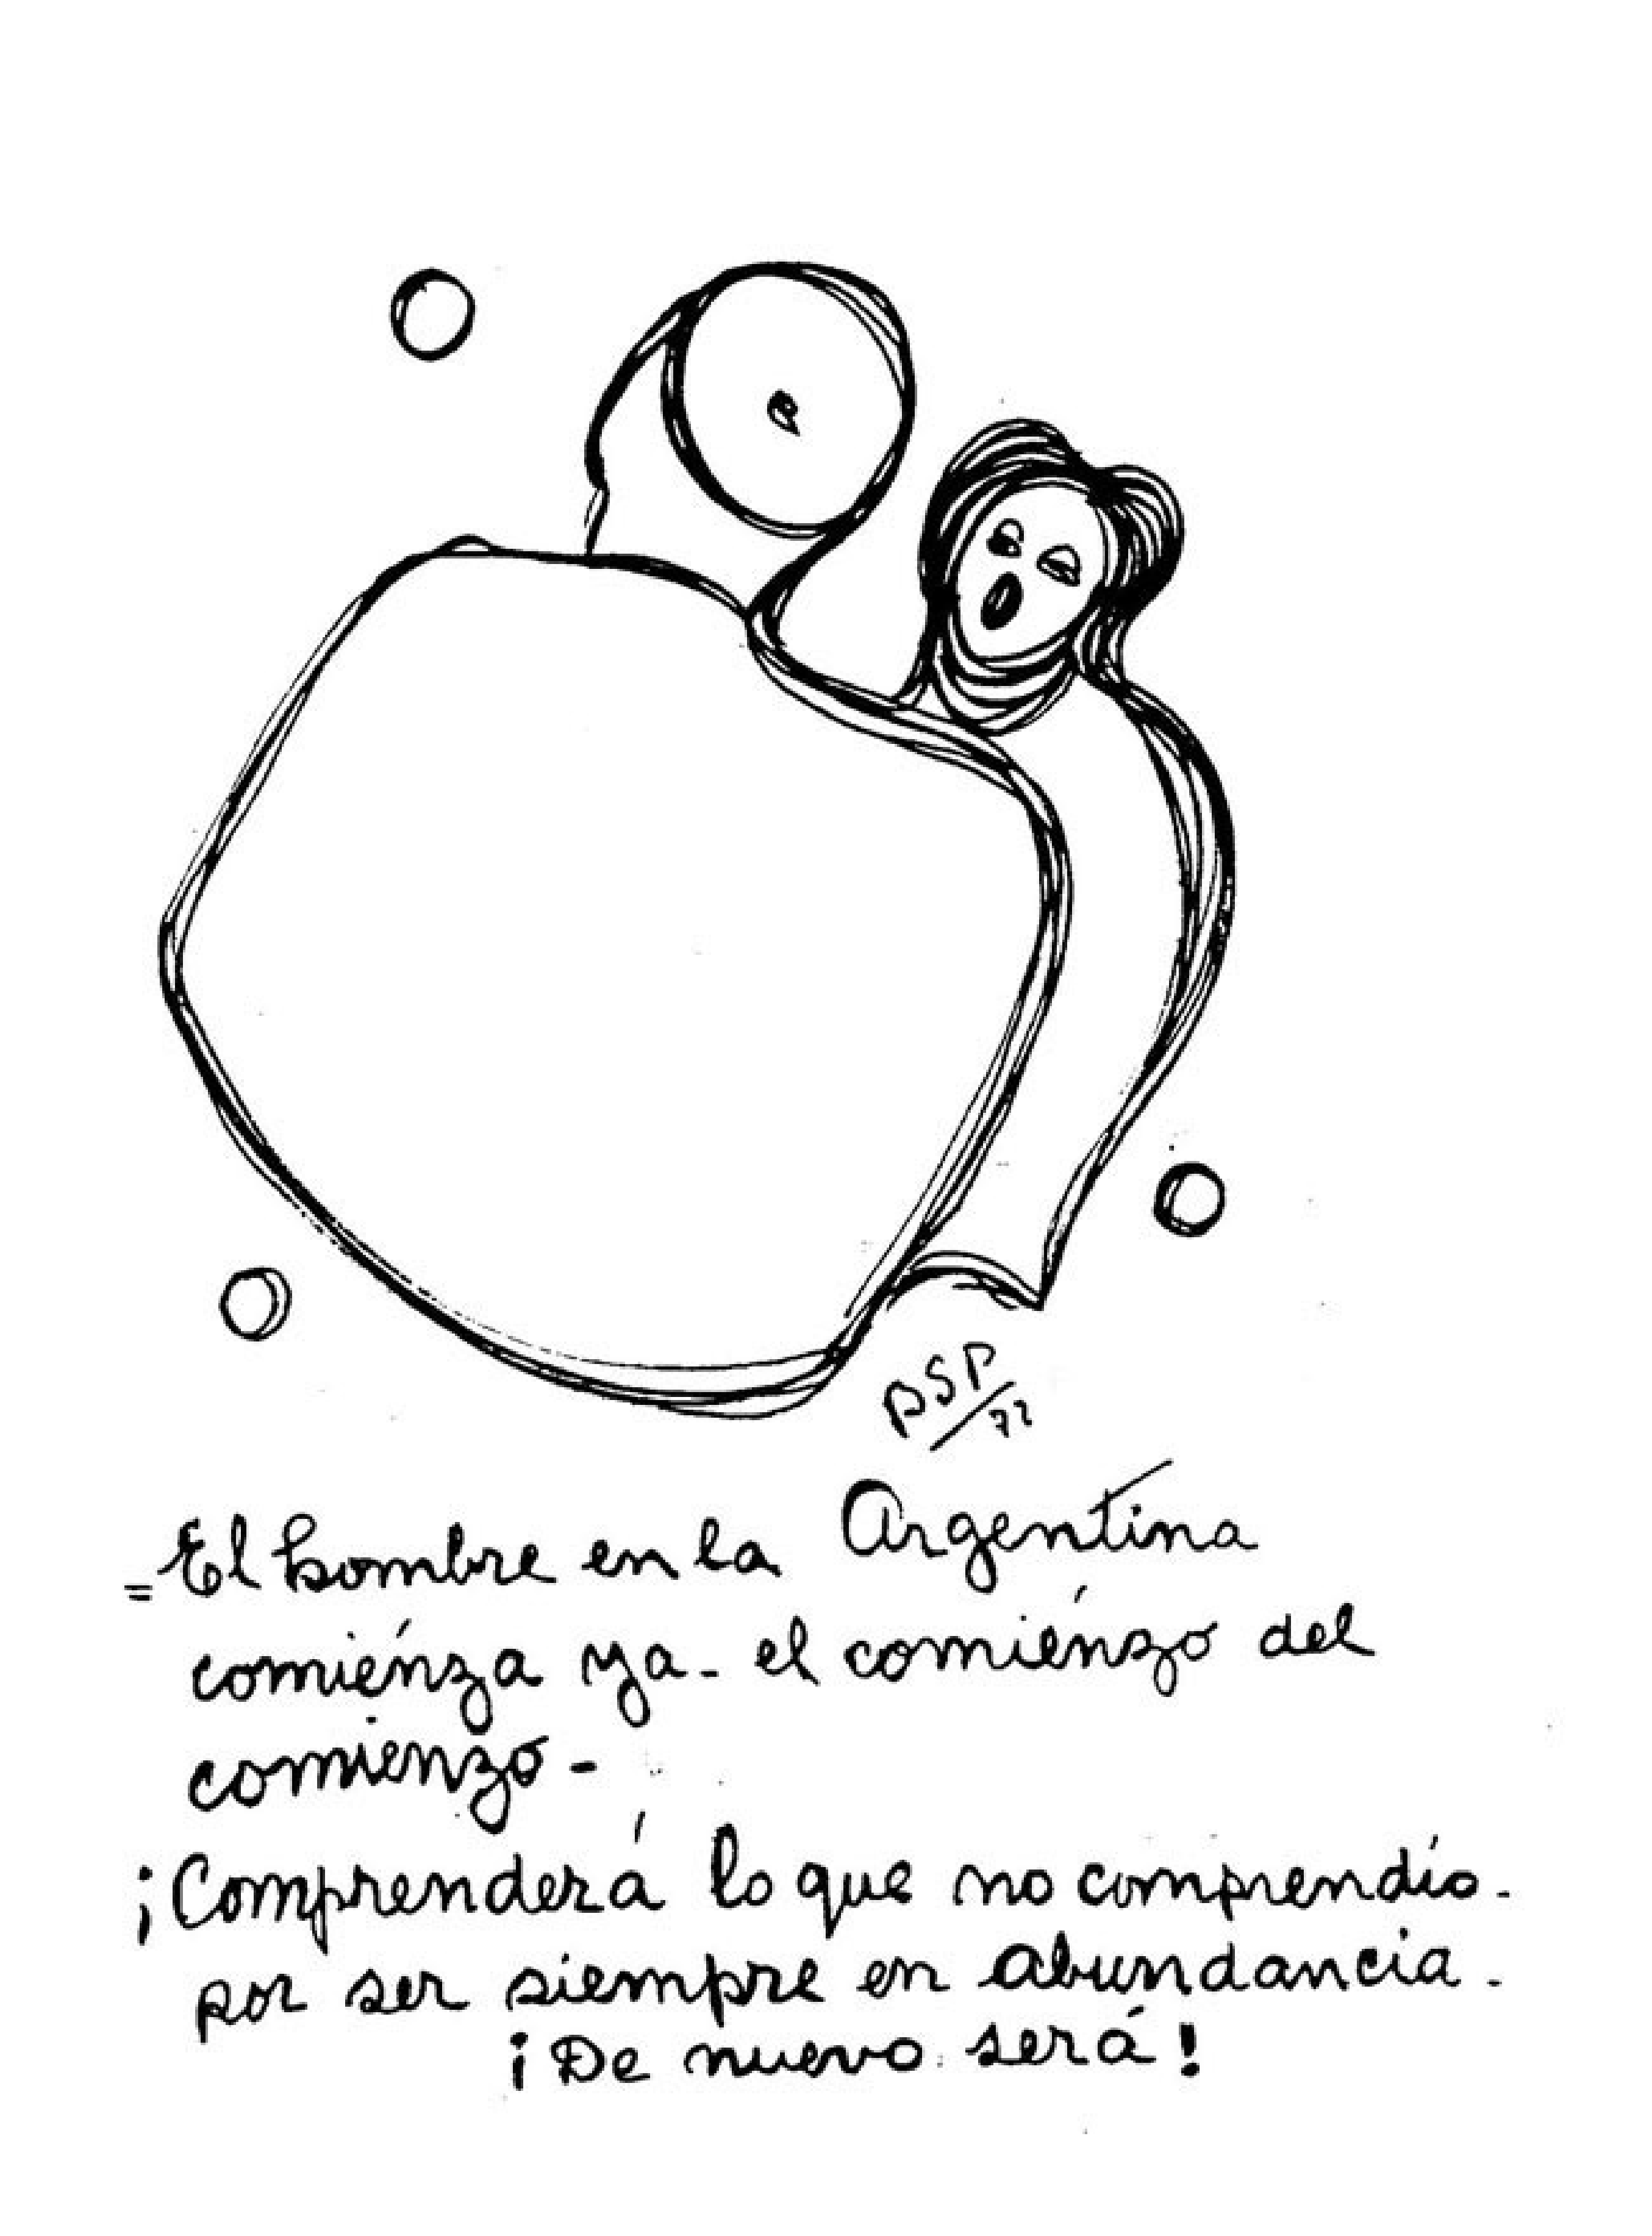 BSP/72
= El hombre en la Argentina
comiénza ya - el comiénzo del
comienzo -
¡Comprenderá lo que no comprendió -
por ser siempre en abundancia -
¡De nuevo será!